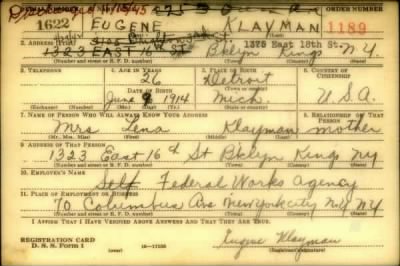 ORDER NUMBER
1622 EUGENE KLAYMAN 1189
2. ADDRESS (Print) 1375 East 18th St.
1323 EAST 16 ST Bklyn Kings N.Y.
(Number and street or R. F. D. number) (Town) (County) (State)
3. TELEPHONE 4. AGE IN YEARS 5. PLACE OF BIRTH 6. COUNTRY OF CITIZENSHIP
26 Detroit
DATE OF BIRTH
June 9 1914 Mich. U.S.A
(Exchange) (Number) (Mo.) (Day) (Yr.) (State or country)
7. NAME OF PERSON WHO WILL ALWAYS KNOW YOUR ADDRESS 8. RELATIONSHIP OF THAT PERSON
Mrs Lena Klayman mother
(Mr., Mrs., Miss) (First) (Middle) (Last)
9. ADDRESS OF THAT PERSON
1323 East 16th St Bklyn Kings NY
(Number and street or R. F. D. number) (Town) (County) (State)
10. EMPLOYER'S NAME
Self Federal Works Agency
11. PLACE OF EMPLOYMENT OR BUSINESS
70 Columbus Ave New York City NY NY
(Number and street or R. F. D. number) (Town) (County) (State)
I AFFIRM THAT I HAVE VERIFIED ABOVE ANSWERS AND THAT THEY ARE TRUE.
REGISTRATION CARD
D. S. S. Form 1 Eugene Klayman
(Registrant's signature)